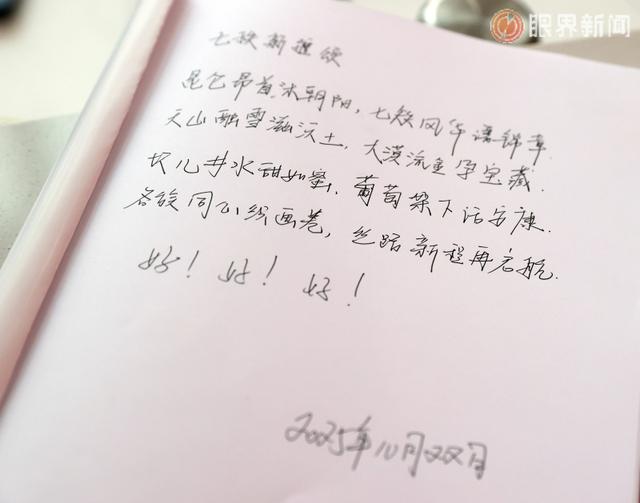 眼界新闻
七秩新疆颂
昆仑昂首沐朝阳，七秩风华谱锦章.
天山融雪滋沃土，大漠流金孕宝藏.
坎儿井水甜如蜜，葡萄架下话安康.
各族同心织画卷，丝路新程再启航.
好！好！好！
2025年10月22日